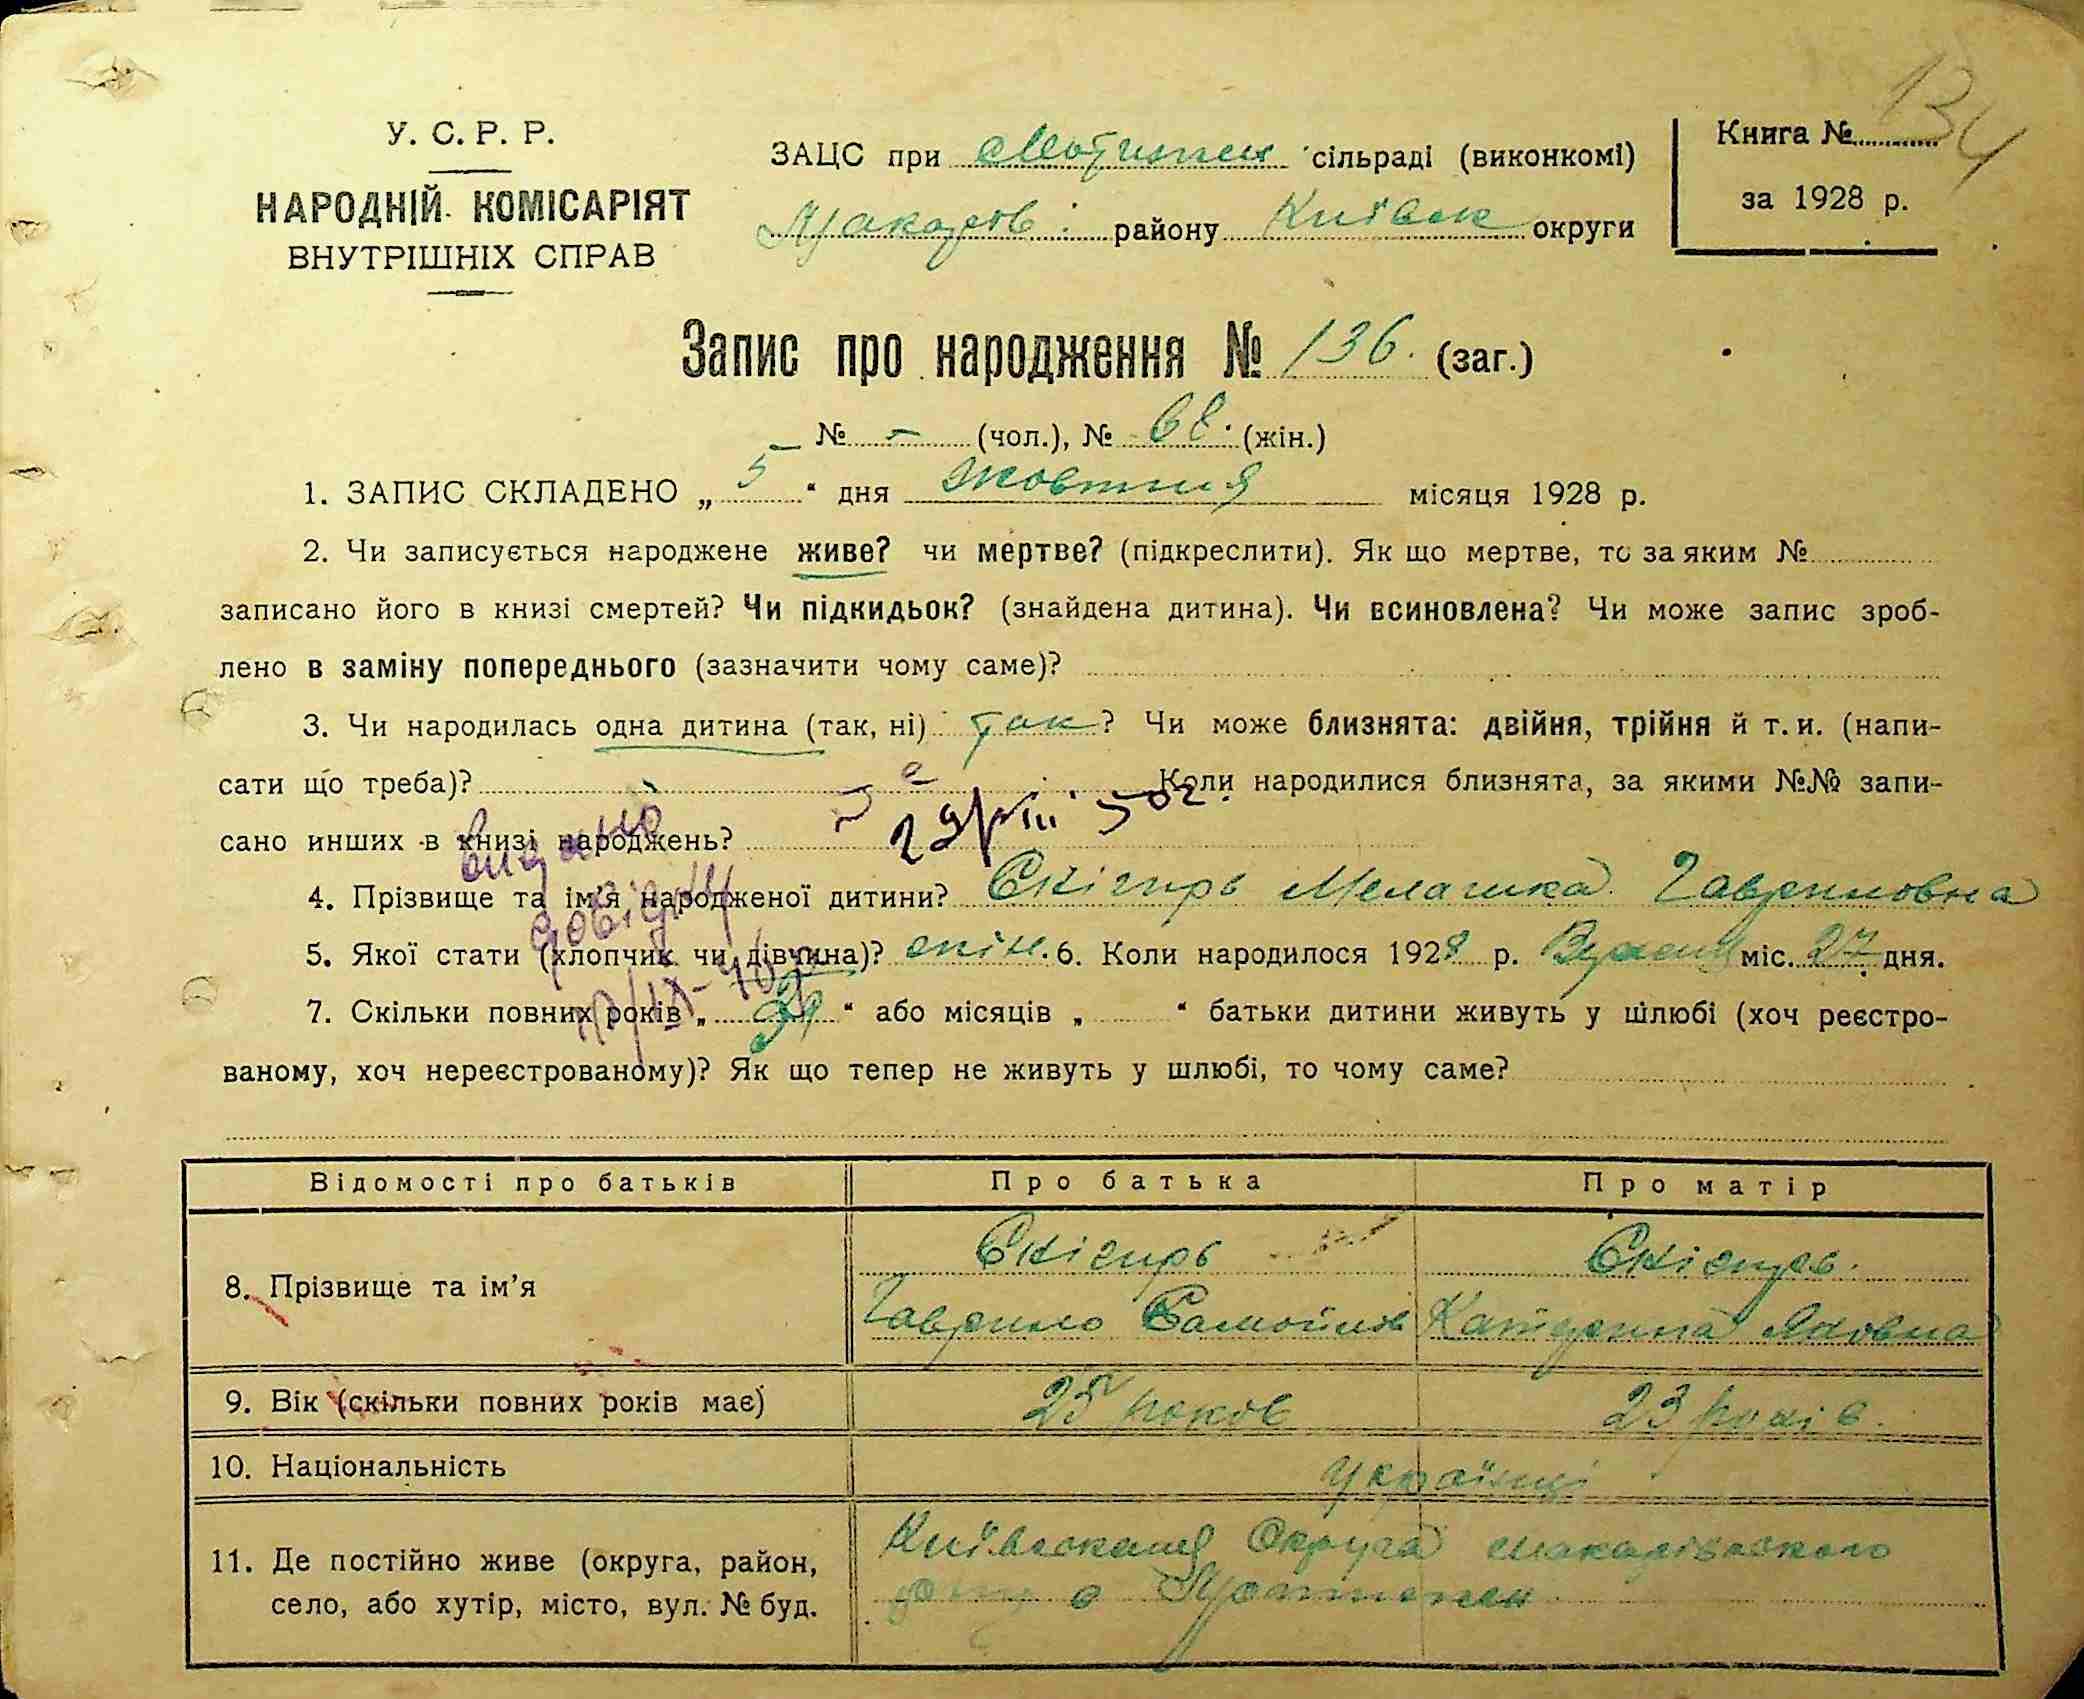 134
У. С. Р. Р.
НАРОДНІЙ КОМІСАРІЯТ
ВНУТРІШНІХ СПРАВ
ЗАЦС при сільраді (виконкомі)
Макарів. району Київськ округи
Книга №
за 1928 р.
Запис про народження № 136. (заг.)
№ - (чол.), № 68. (жін.)
1. ЗАПИС СКЛАДЕНО „ 5 “ дня жовтня місяця 1928 р.
2. Чи записується народжене живе? чи мертве? (підкреслити). Як що мертве, то за яким №
записано його в книзі смертей? Чи підкидьок? (знайдена дитина). Чи всиновлена? Чи може запис зроб-
лено в заміну попереднього (зазначити чому саме)?
3. Чи народилась одна дитина (так, ні) так? Чи може близнята: двійня, трійня й т. и. (напи-
сати що треба)? Коли народилися близнята, за якими №№ запи-
сано инших в книзі народжень?
видано
довідку
4. Прізвище та ім’я народженої дитини? Скігирь Мелашка Гавриловна
5. Якої стати (хлопчик чи дівчина)? жін. 6. Коли народилося 1928 р. міс. 27 дня.
7. Скільки повних років „ “ або місяців „ “ батьки дитини живуть у шлюбі (хоч реєстро-
ваному, хоч нереєстрованому)? Як що тепер не живуть у шлюбі, то чому саме?
Відомості про батьків Про батька Про матір
8. Прізвище та ім’я
Скігирь Скігирь.
Гаврило Самойлов Катерина Яковна
9. Вік (скільки повних років має) 25 роков 23 років.
10. Національність Українці
11. Де постійно живе (округа, район,
село, або хутір, місто, вул. № буд.
Київськая Округа Макарівського